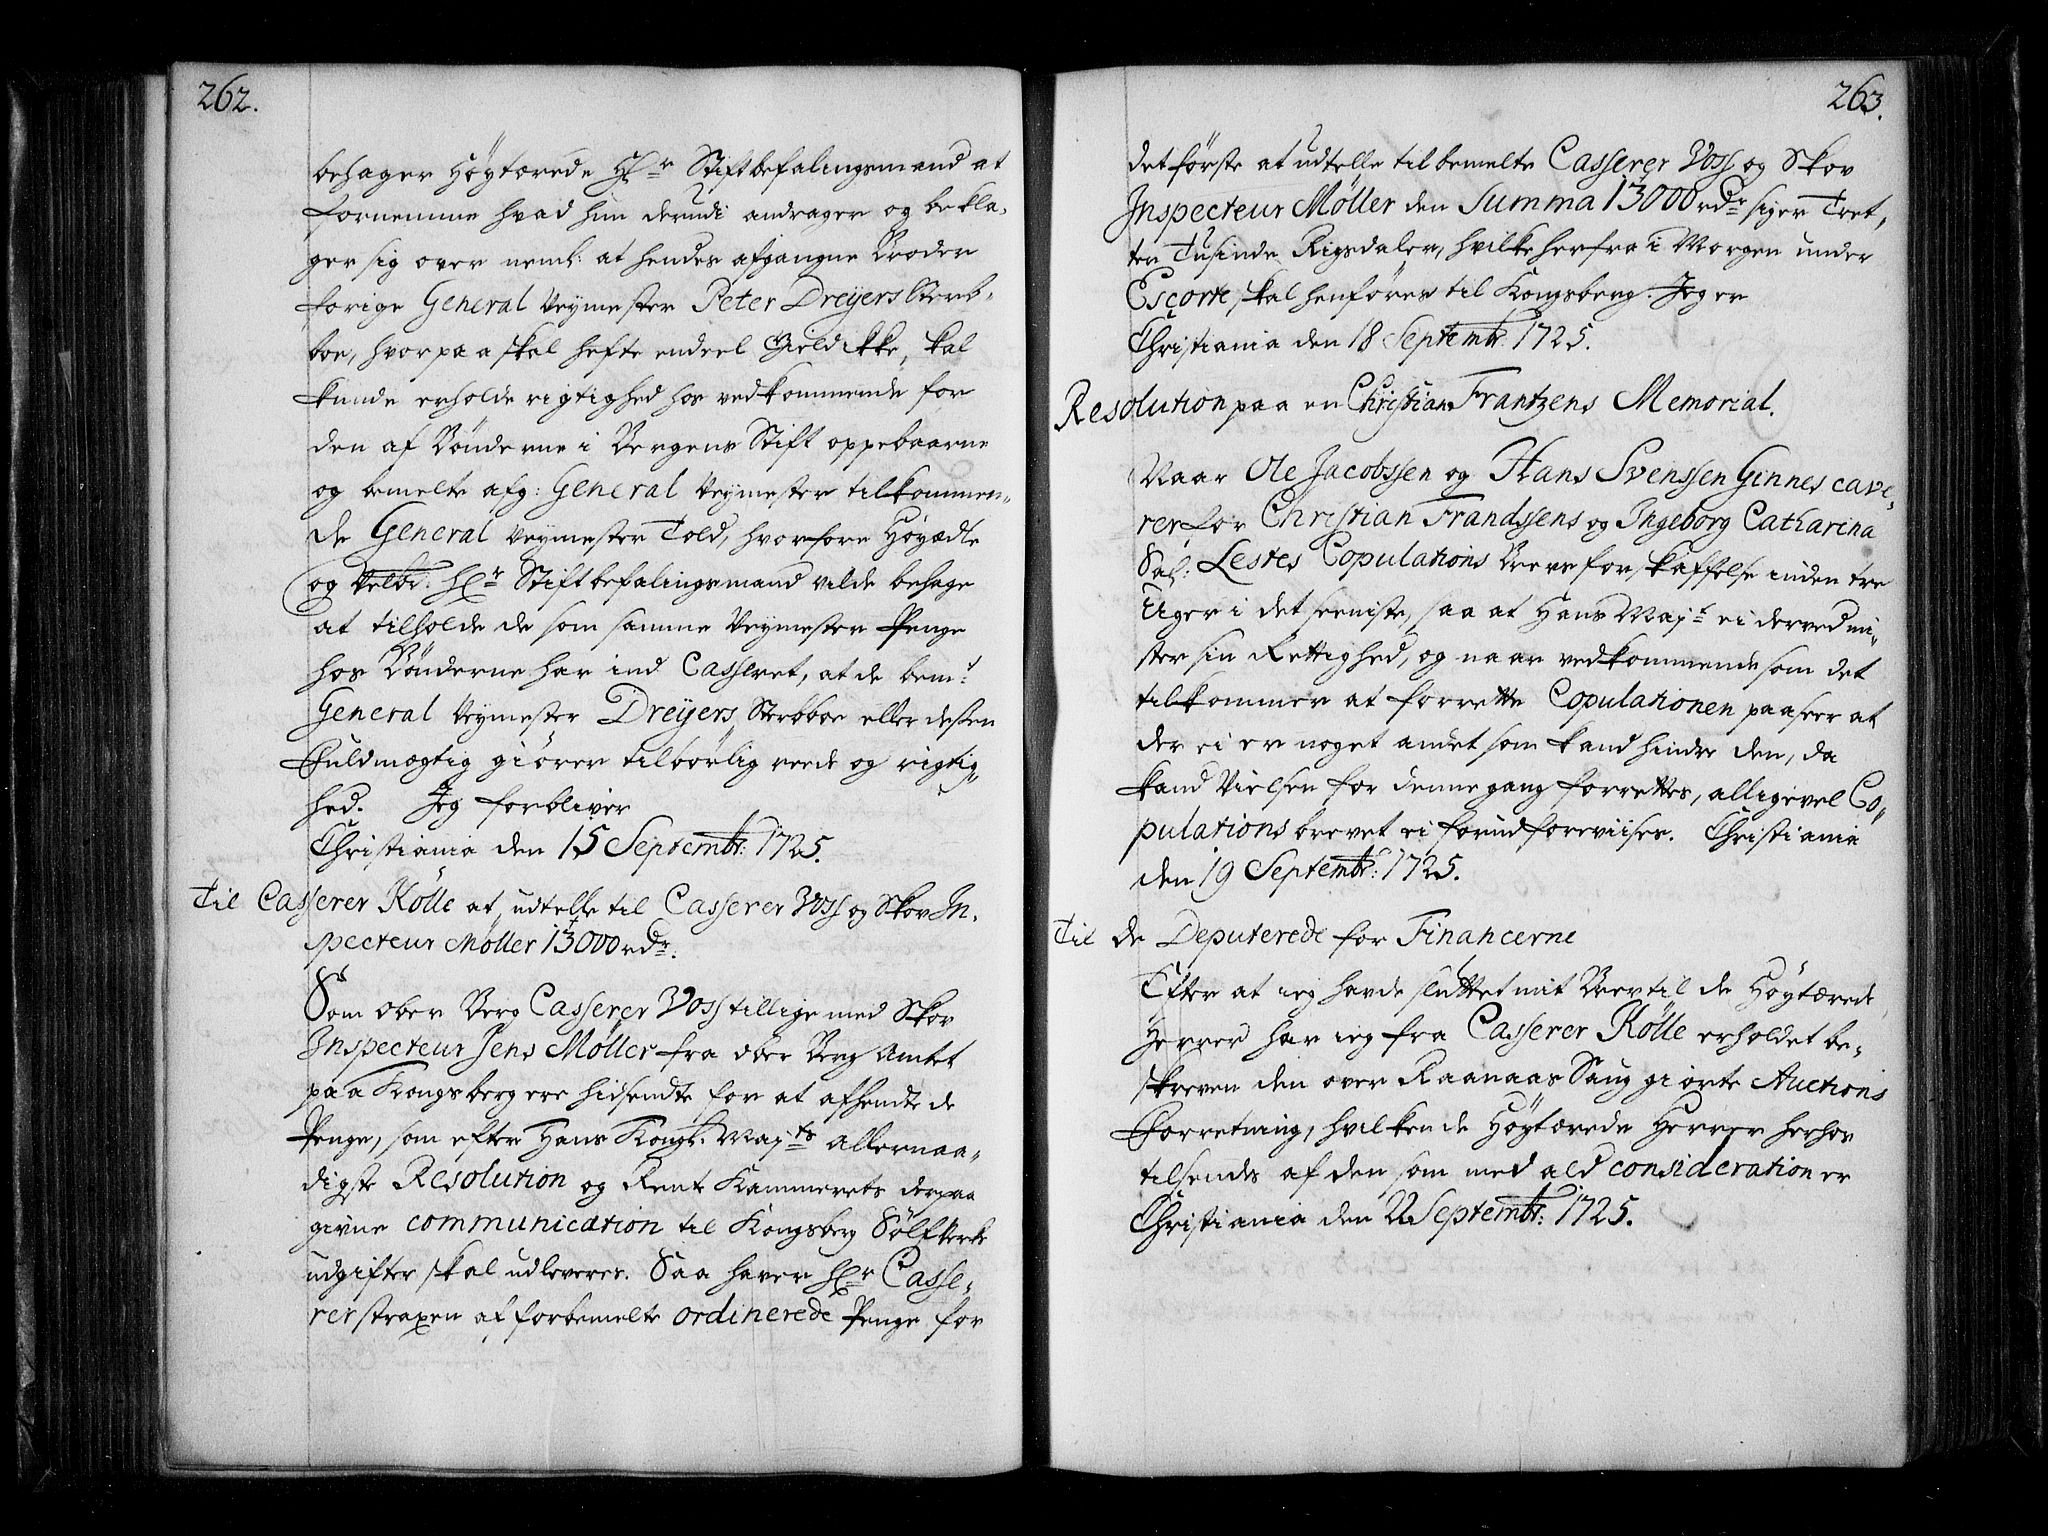 262.
behager Høytærede Hr Stiftbefalingsmand at
fornemme hvad hun derudi andrager og bekla-
ger sig over neml: at hendes afgangne Broder
forige General Veymester Peter Dreyers Sterb-
boe, hvorpaa skal hefte endeel Gield ikke, skal
kunde erholde rigtighed hos vedkommende for
den af Bønderne i Bergens Stift oppebaarne
og bemelte afg: General Veymester tilkommen-
de General Veymester Told, hvorfore Høyædle
og Velbr: Hr Stiftbefalingsmand vilde behage
at tilholde de som samme Veymester Penge
hos Bønderne har ind Casseret, at de bemt
General Veymester Dreyers Sterbboe eller dessen
Fuldmægtig giører tilbørlig reede og rigtig-
hed. Jeg forbliver
Christiania den 15 Septembr: 1725.
Til Casserer Kölle at udtelle til Casserer Voss og Skov In-
specteur Møller 13000 rdr.
Som ober Berg Casserer Voss tillige med Skov
Inspecteur Jens Møller fra ober Berg Amtet
paa Kongsberg ere hidsendte for at afhendte de
Penge, som efter Hans Kongl: Mayts allernaa-
digste Resolution og Rente Kammerets derpaa
givne communication til Kongsberg Sølfverks
udgifter skal udleveres. Saa haver Hr Casse-
rer straxen af forbemelte ordinerede Penge for
263.
det første at udtelle til bemelte Casserer Voss og Skov
Inspecteur Møller den Summa 13000 rdr siger Tret-
ten Tusinde Rigsdaler, hvilke herfra i Morgen under
Escorte skal henføres til Kongsberg. Jeg er
Christiania den 18 Septembr. 1725.
Resolution paa en Christian Frantzens Memorial.
Naar Ole Jacobssen og Hans Svenssen Ginnes cave-
rer for Christian Frandssens og Ingeborg Catharina
Sal: Lestes Copulations Brevs forskaffelse inden tre
Uger i det seeniste, saa at Hans Mayt ei derved mi-
ster sin Rettighed, og naar vedkommende som det
tilkommer at forrette Copulationen paaseer at
der ei er noget andet som kand hindre den, da
kand Vielsen for denne gang forrettes, alligevel Co-
pulations brevet ei forud foreviises. Christiania
den 19 Septembr: 1725.
Til de Deputerede for Financerne
Efter at ieg havde sluttet mit Brev til de Høytærede
Herrer har ieg fra Casserer Kölle erholdet be-
skreven den over Raanaas Saug giorte Auctions
Forretning, hvilken de Høytærede Herrer herhos
tilsendes af den som med ald consideration er
Christiania den 22 Septembr: 1725.